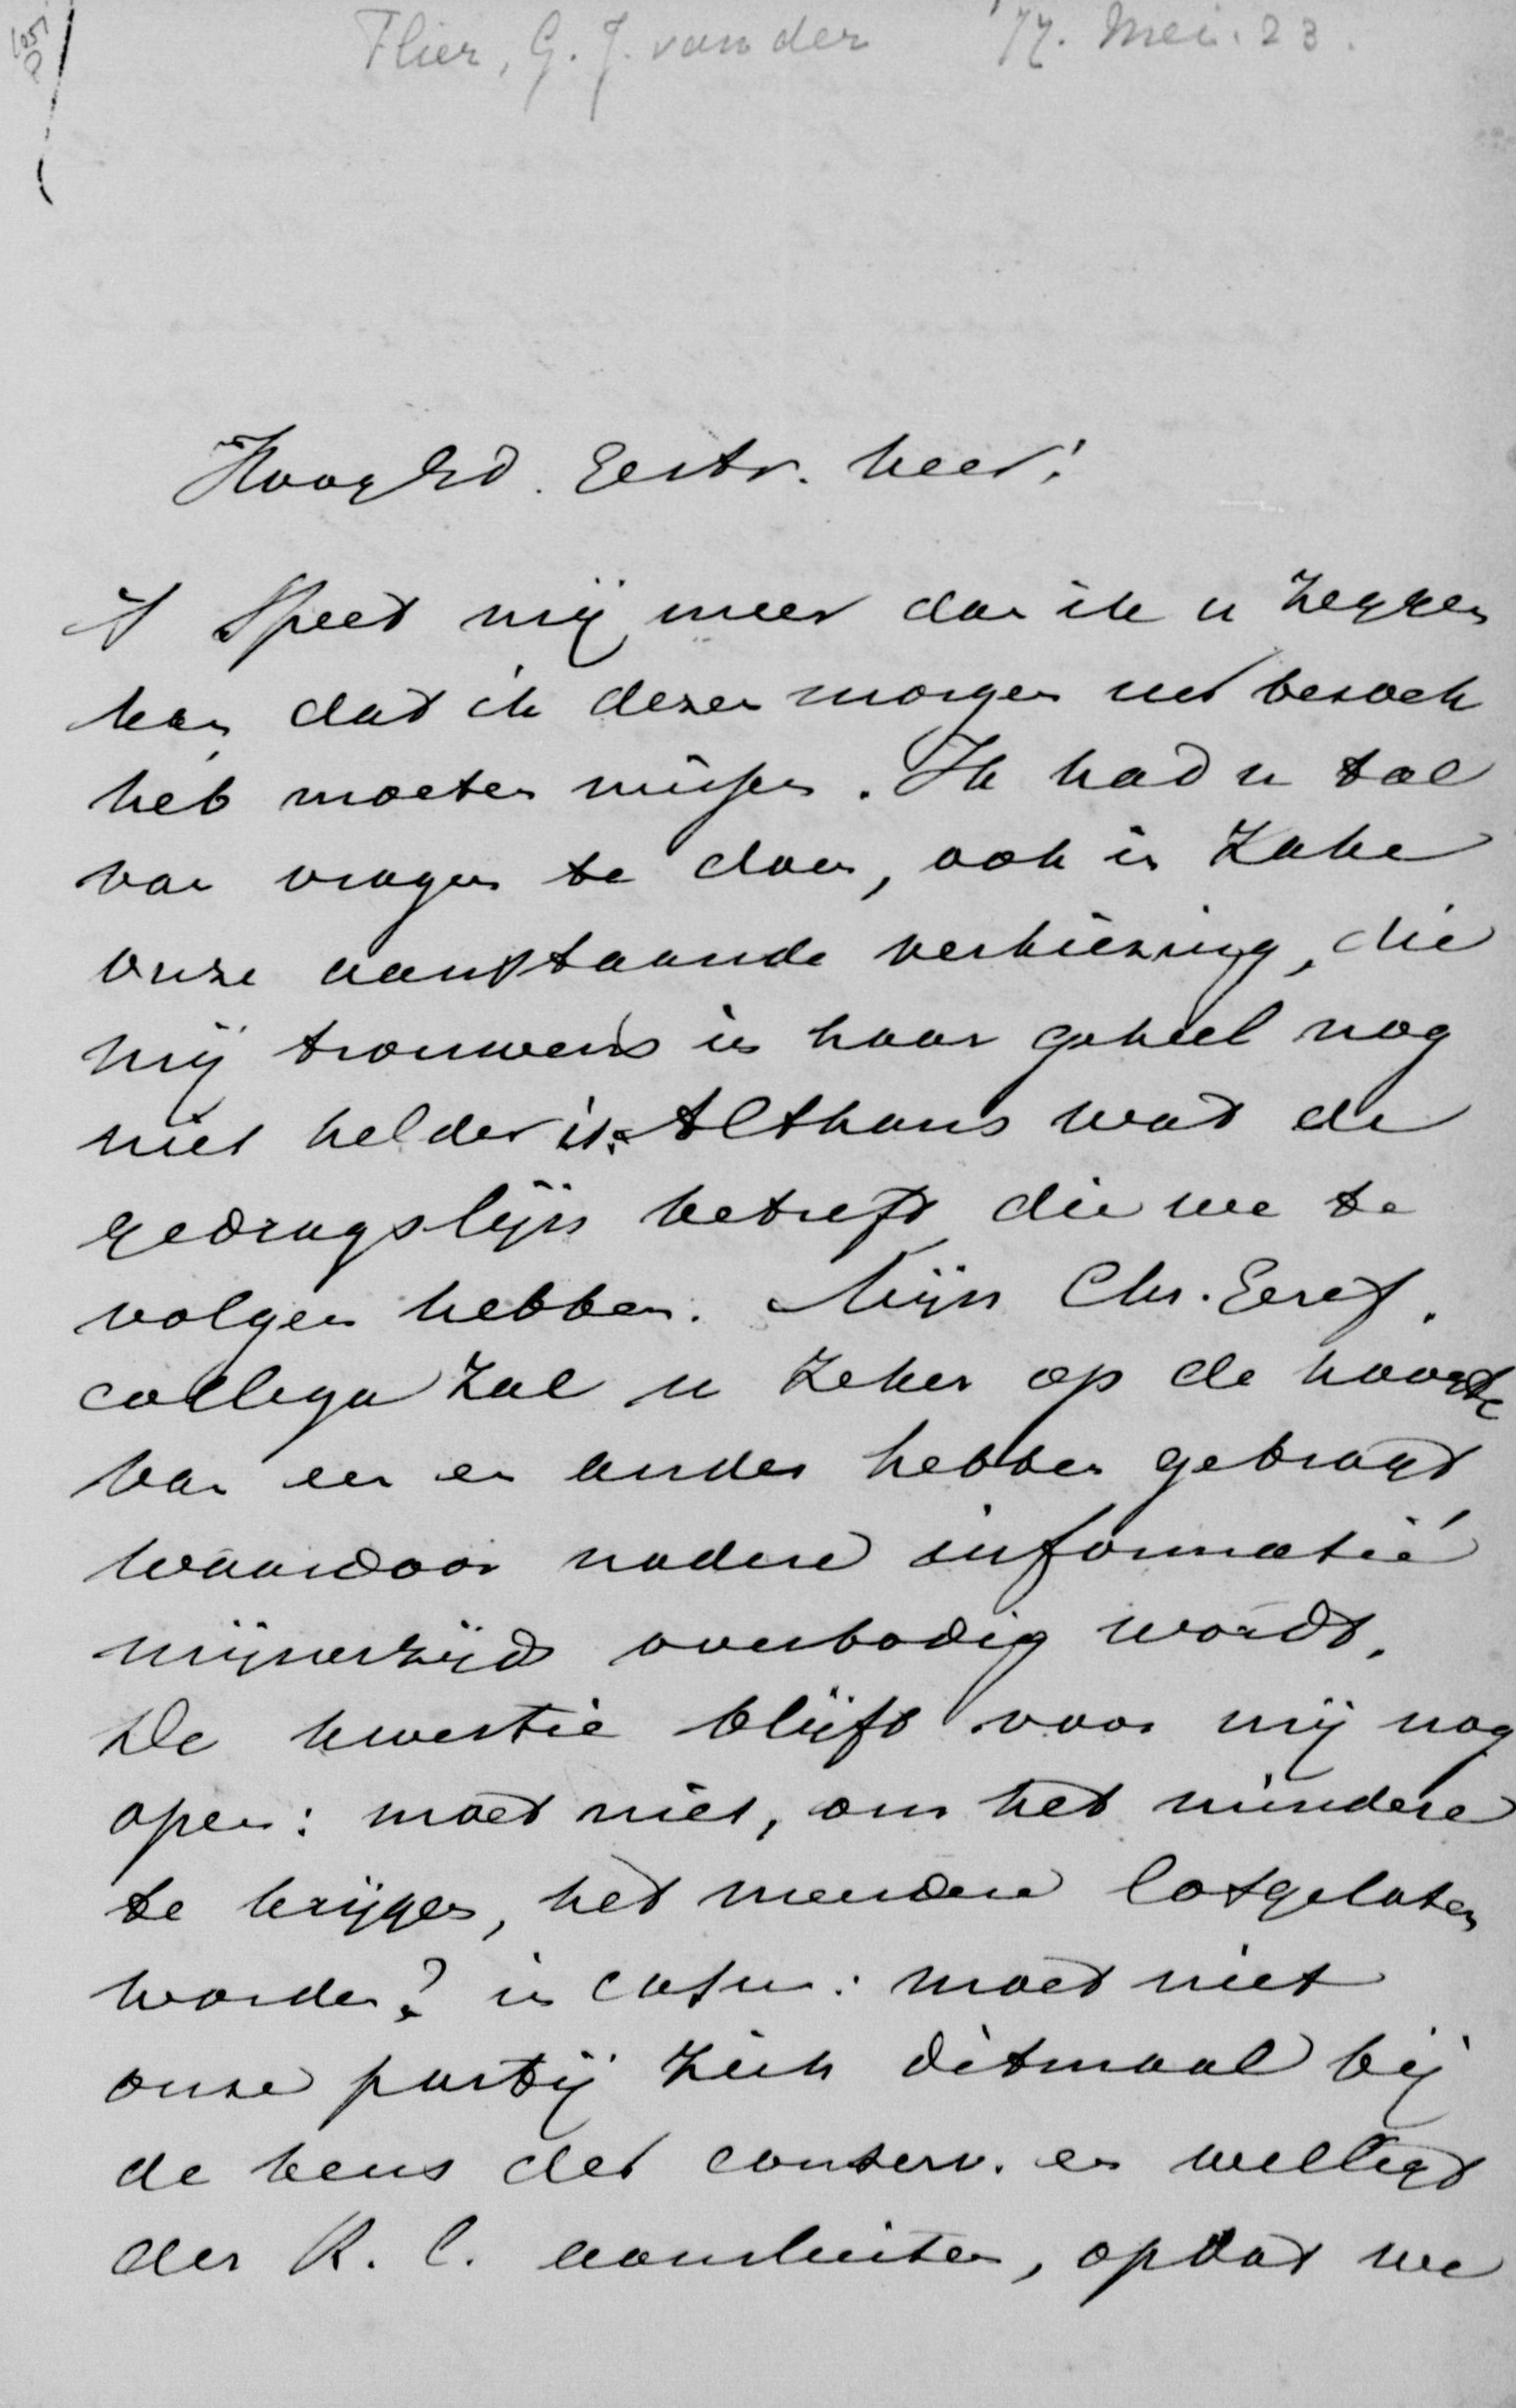 Flier, G. J. van der 77. Mei. 23.
HoogEd. Gestr. heer!
't Speet mij meer dan ik u zeggen
kan dat ik dezen morgen uw bezoek
heb moeten missen. Ik had u tal
van vragen te doen, ook in zake
onze aanstaande verkiezing, die
mij trouwens in haar geheel nog
niet helder is. Althans wat de
gedragslijn betreft die we te
volgen hebben. Mijn Chr. Geref.
collega zal u zeker op de hoogte
van een en ander hebben gebragt
waardoor nadere informatie
mijnerzijds overbodig wordt.
De kwestie blijft voor mij nog
open: moet niet, om het mindere
te krijgen, het meerdere losgelaten
worden? in casu: moet niet
onze partij zich ditmaal bij
de keus der conserv. en welligt
der R. C. aansluiten, opdat we